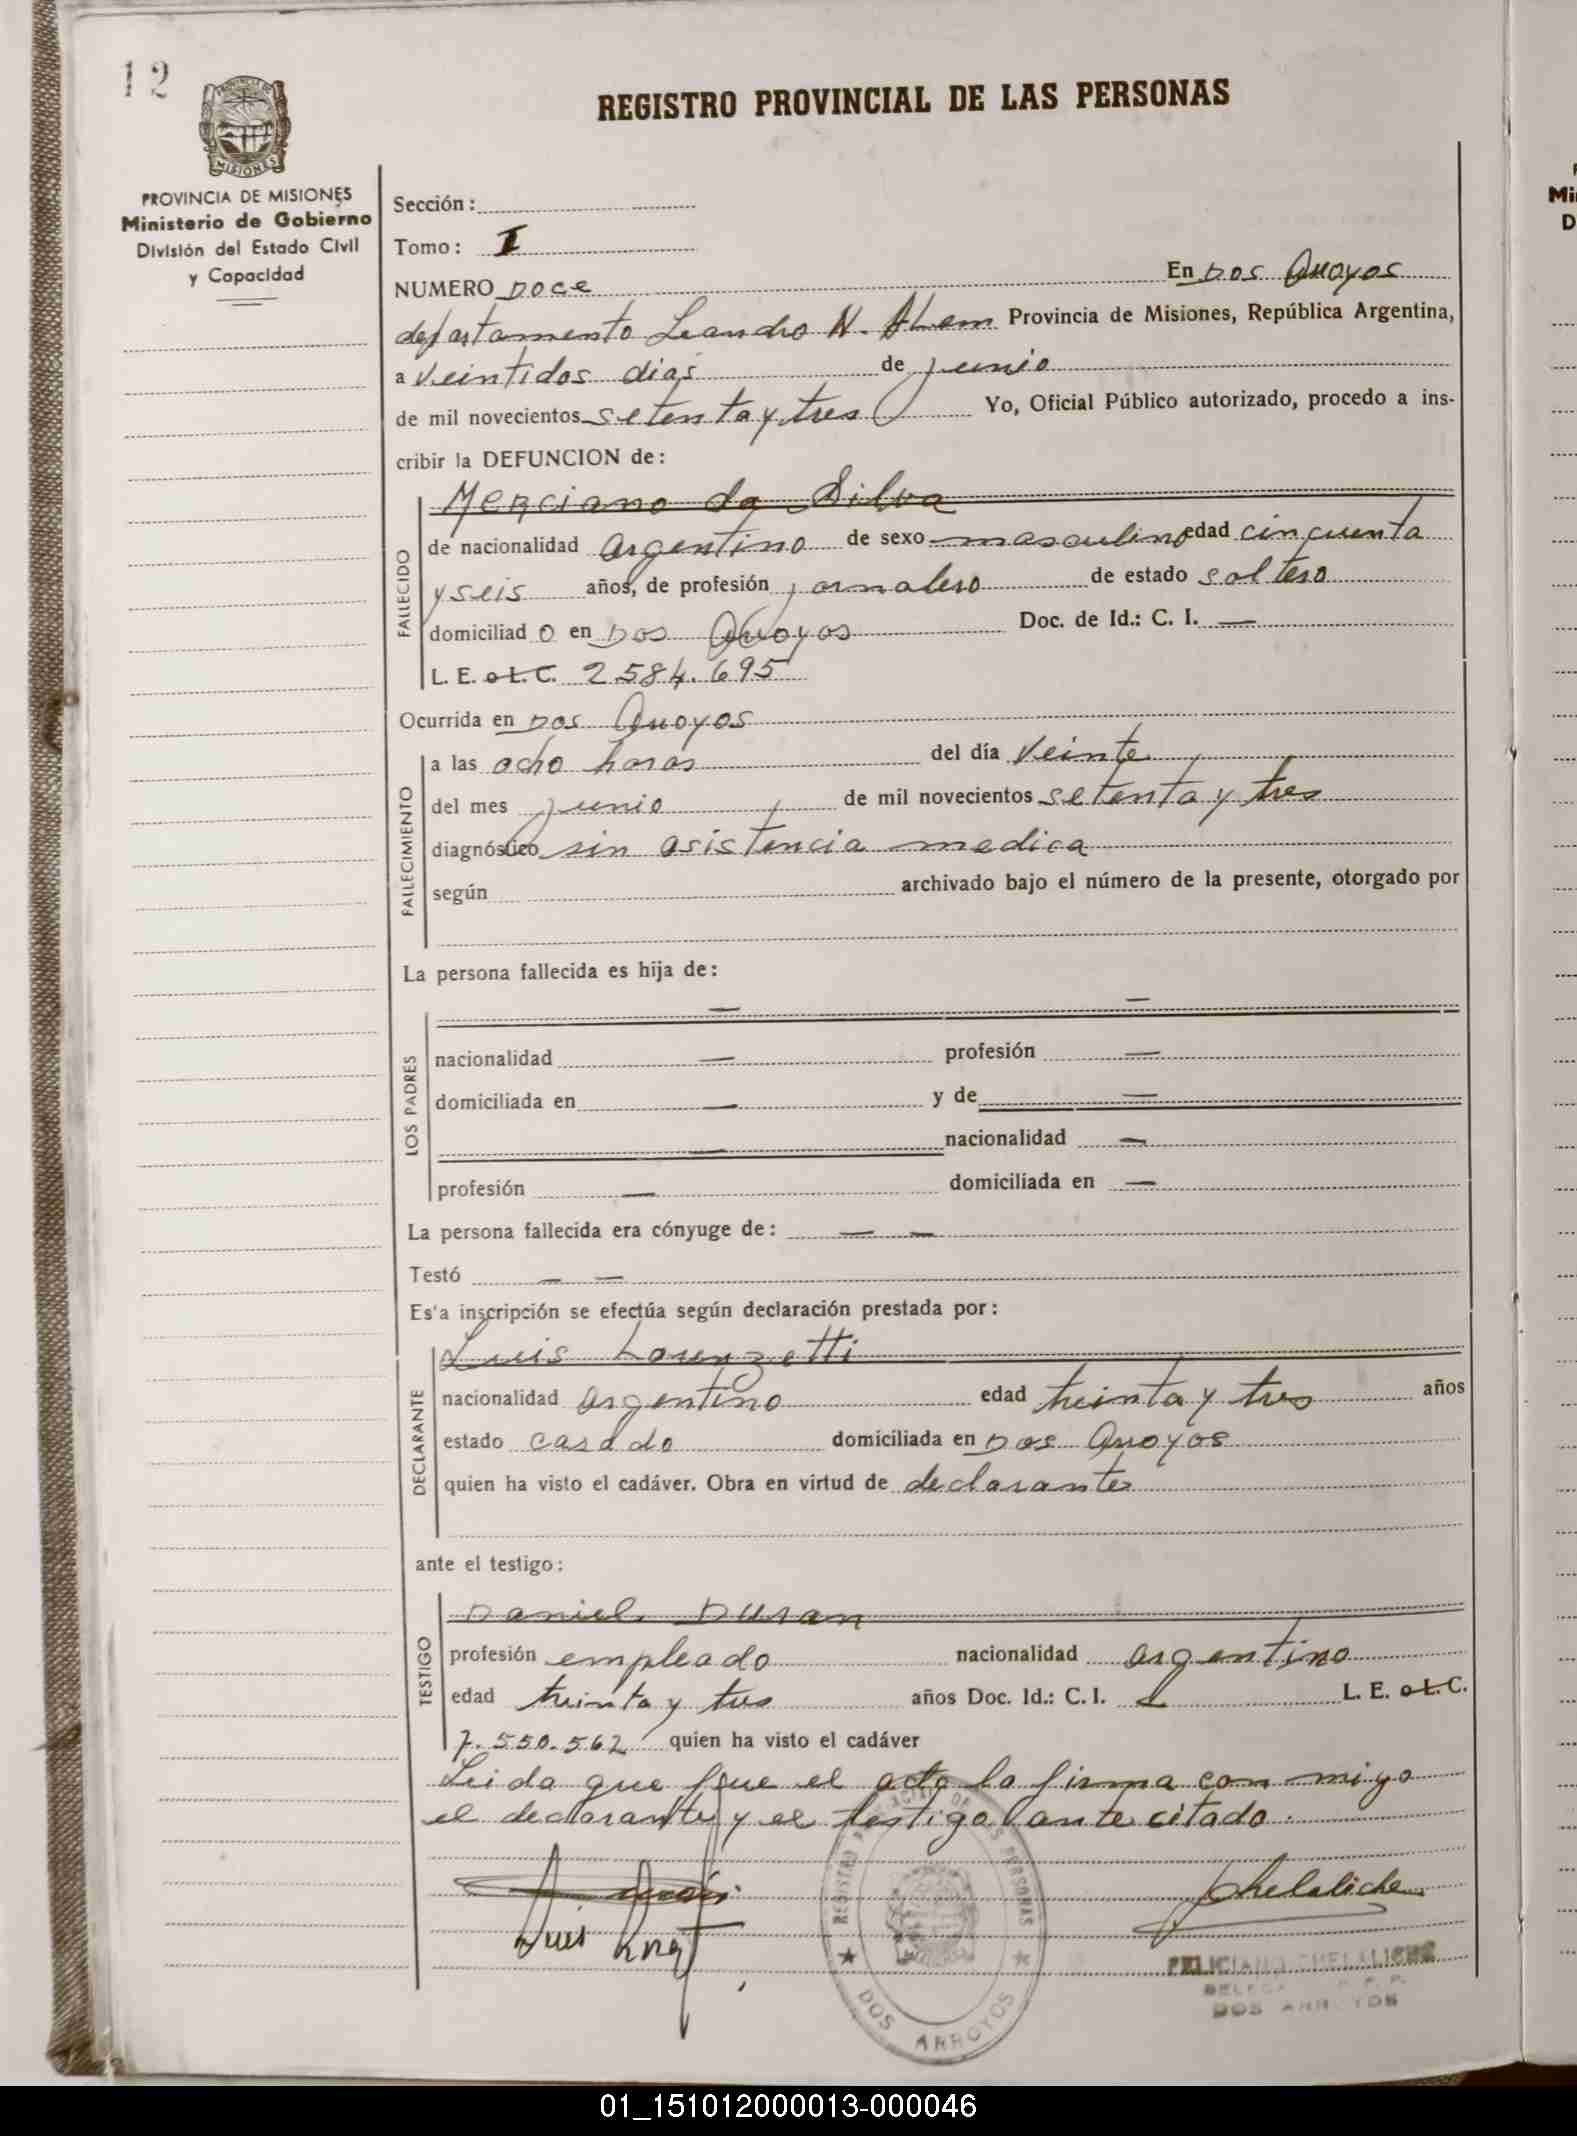 12
REGISTRO PROVINCIAL DE LAS PERSONAS
MISIONES
PROVINCIA DE MISIONES
Ministerio de Gobierno
División del Estado Civil
y Capacidad
Sección:
Tomo: I
NUMERO Doce En Dos Arroyos
departamento Leandro N. Alem Provincia de Misiones, República Argentina,
a veintidos dias de junio
de mil novecientos setenta y tres Yo, Oficial Público autorizado, procedo a ins-
cribir la DEFUNCION de:
Merciano da Silva
FALLECIDO
de nacionalidad argentino de sexo masculino edad cincuenta
y seis años, de profesión jornalero de estado soltero
domiciliad o en Dos Arroyos Doc. de Id.: C. I. —
L. E. o L. C. 2584.695
Ocurrida en Dos Arroyos
FALLECIMIENTO
a las ocho horas del día veinte
del mes junio de mil novecientos setenta y tres
diagnóstico sin asistencia medica
según archivado bajo el número de la presente, otorgado por
La persona fallecida es hija de:
— —
LOS PADRES
nacionalidad — profesión —
domiciliada en — y de —
— nacionalidad —
profesión — domiciliada en —
La persona fallecida era cónyuge de: — —
Testó — —
Es'a inscripción se efectúa según declaración prestada por:
Luis Lorenzetti
DECLARANTE
nacionalidad argentino edad treinta y tres años
estado casado domiciliada en Dos Arroyos
quien ha visto el cadáver. Obra en virtud de declarante
ante el testigo:
Daniel Duran
TESTIGO
profesión empleado nacionalidad argentino
edad treinta y tres años Doc. Id.: C. I. L. E. o L. C.
7.550.562 quien ha visto el cadáver
Leida que fue el acta la firma con migo
el declarante y el testigo ante citado.
Luis
Chelaliche
REGISTRO PROVINCIAL DE LAS PERSONAS
DOS ARROYOS
FELICIANO CHELALICHE
DOS ARROYOS
01_151012000013-000046